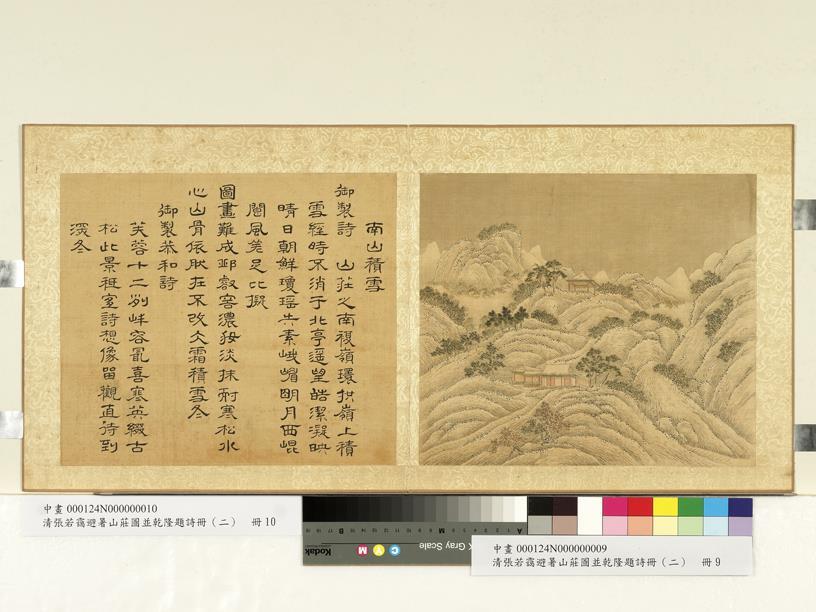 南山積雪
御製詩 山莊之南複嶺環拱嶺上積
雪經時不消于北亭遥望皓潔凝映
晴日朝鮮瓊瑶共素峨嵋明月西崐
閬風差足比擬
圖畫難成邱壑容濃妝淡抹耐寒松水
心山骨依然在不改仌霜積雪冬
御製恭和詩
芙蓉十二列峰容最喜寒英綴古
松此景祗宜詩想像留觀直待到
深冬
中畫 000124N000000010
清張若靄避暑山莊圖並乾隆題詩冊(二) 冊10
Kodak
M Y C
Gray Scale
B M A
中畫 000124N000000009
清張若靄避暑山莊圖並乾隆題詩冊(二) 冊9